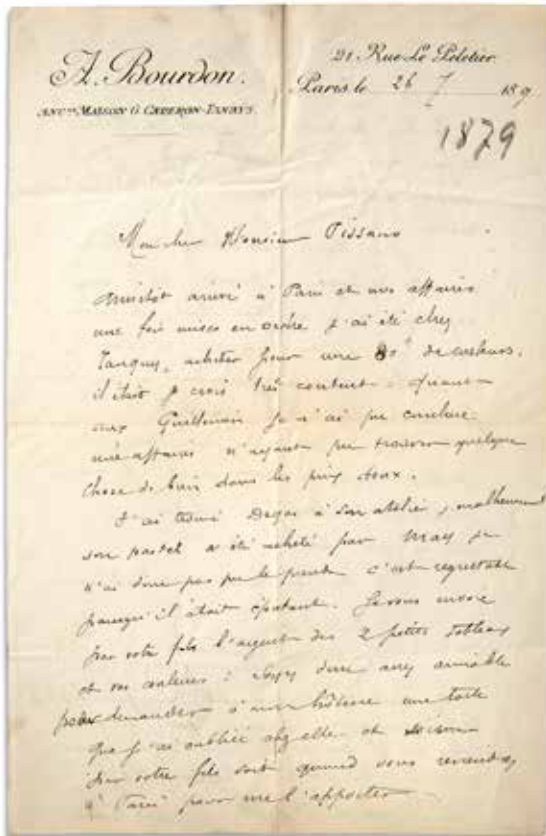 A. Bourdon.
ANC.NE MAISON G. CADERON-TANNYS.
21 Rue Le Peletier
Paris le 26 7 189
1879
Mon cher Monsieur Pissaro
Aussitôt arrivé à Paris et mes affaires
une fois mises en ordre j'ai été chez
Tanguy, acheter pour une de couleurs.
il était je crois très content. quant
aux Guillemin je n'ai pu conclure
une affaires n'ayant pu trouver quelque
chose de bien dans les prix doux.
J'ai trouvé Degas à son atelier, malheureust
son pastel a été acheté par May je
n'ai donc pas pu le prendre c'est regrettable
parcequ'il était épatant. Je vous envoie
par votre fils l'argent des 2 petits tableaux
et vos couleurs : Soyez donc assez aimable
pour demander à mon hôtesse une toile
que j'ai oubliée chez elle et
par votre fils soit quand vous reviendrez
à Paris pour me l'apporter